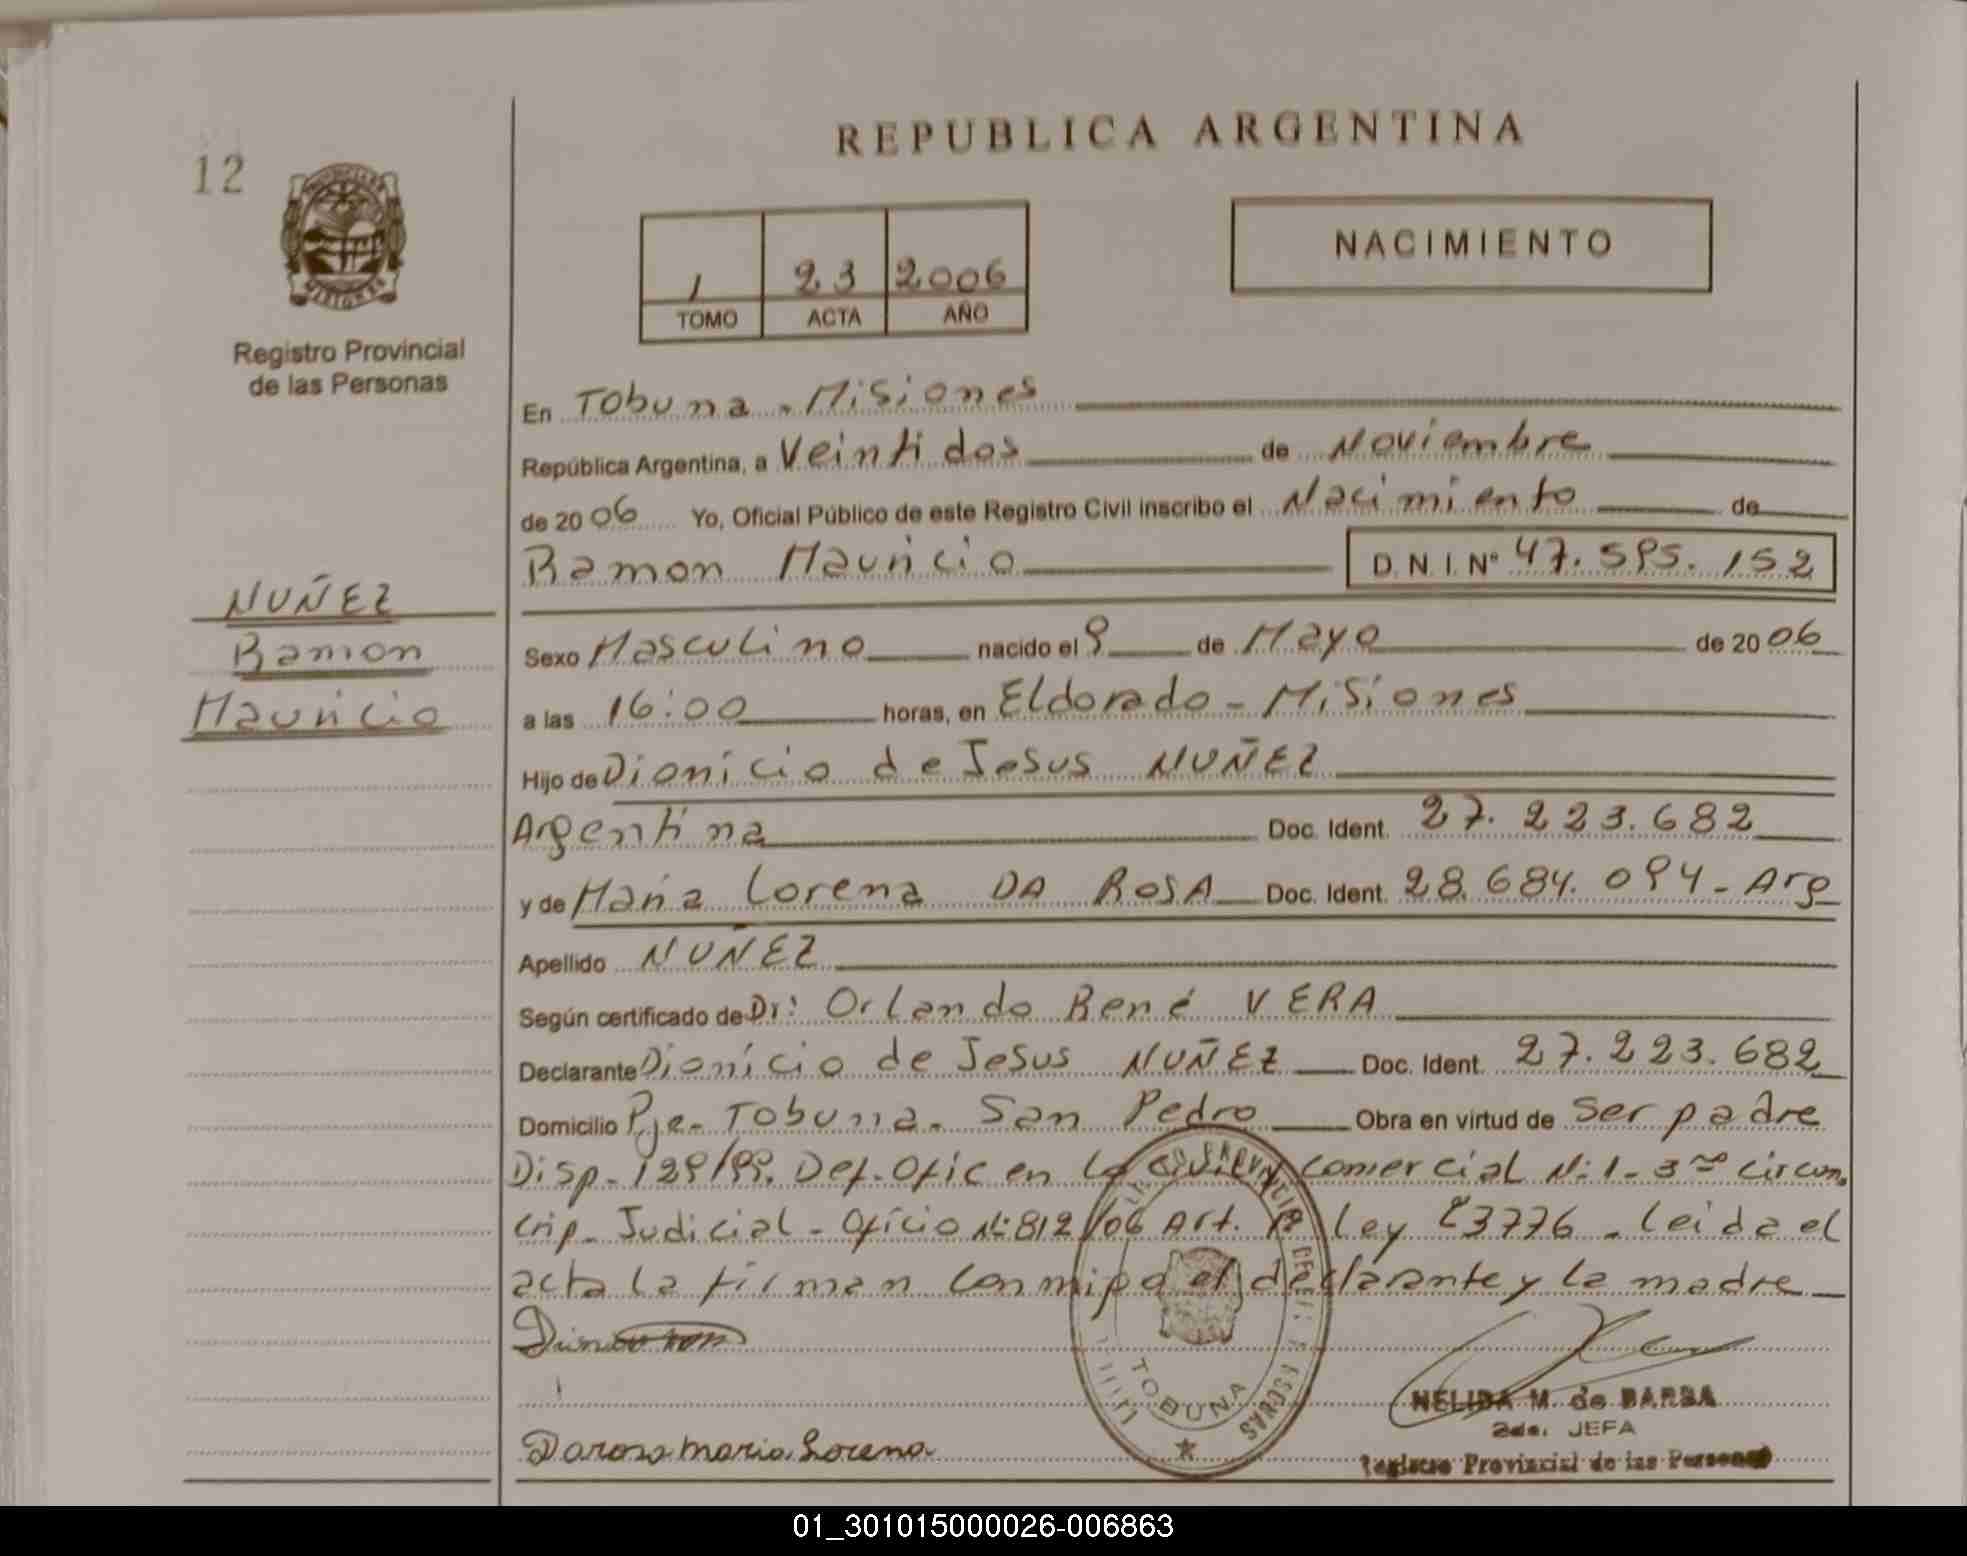 REPUBLICA ARGENTINA
12
NACIMIENTO
1 23 2006
TOMO ACTA AÑO
Registro Provincial
de las Personas
En Tobuna - Misiones
República Argentina, a Veinti dos de Noviembre
de 2006 Yo, Oficial Público de este Registro Civil inscribo el Nacimiento de
Ramon Mauricio D.N.I. Nº 47.595.152
NUÑEZ
Ramon
Mauricio
Sexo Masculino nacido el 9 de Mayo de 2006
a las 16:00 horas, en Eldorado - Misiones
Hijo de Dionicio de Jesus NUÑEZ
Argentina Doc. Ident. 27.223.682
y de Maria Lorena DA ROSA Doc. Ident. 28.684.094 - Arg
Apellido NUÑEZ
Según certificado de Dr: Orlando René VERA
Declarante Dionicio de Jesus NUÑEZ Doc. Ident. 27.223.682
Domicilio Pje - Tobuna - San Pedro Obra en virtud de Ser padre
Disp - 129/99. Def. Ofic en lo Civil y Comercial N: 1 - 3ra circuns
crip - Judicial - Oficio Nº 812/06 Art. Ley 23776 - leida el
acta la firman conmigo el declarante y la madre
Darosa maria Lorena
TOBUNA
NELIDA M. de BARBA
2da. JEFA
Registro Provincial de las Personas
01_301015000026-006863